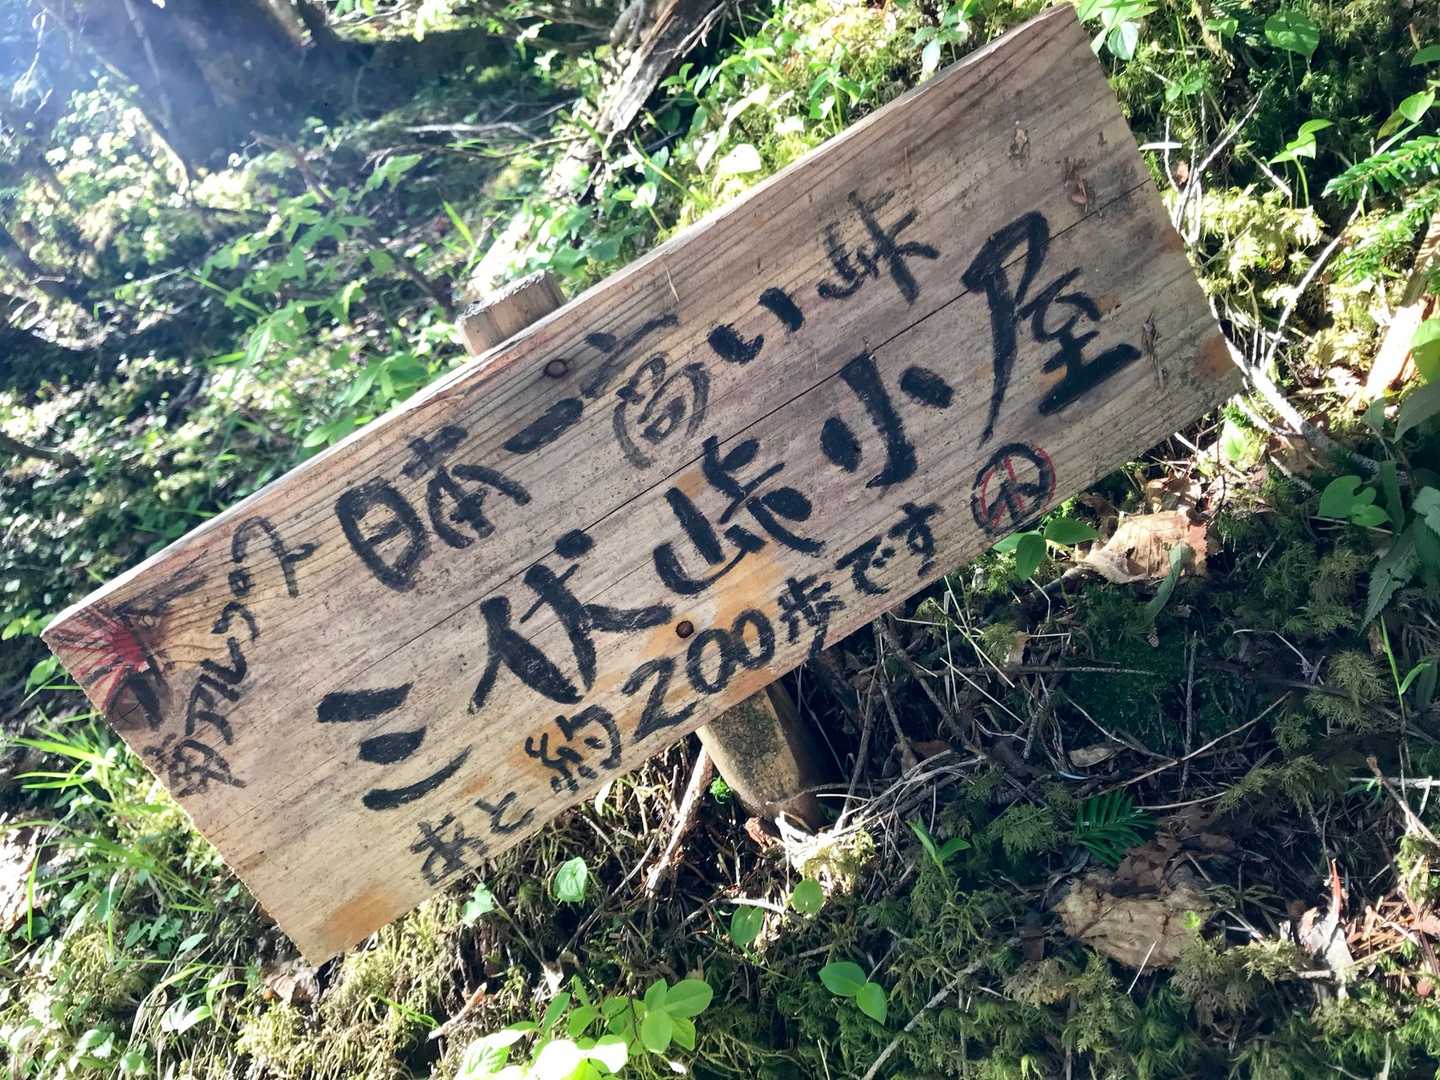 南アルプス
日本一高い峠
三伏峠小屋
あと約200歩です